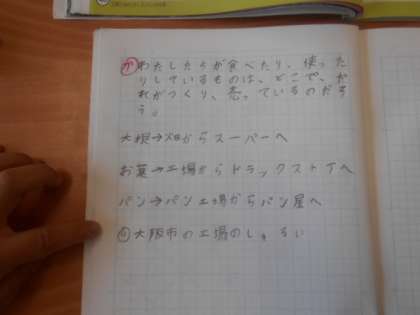 か わたしたちが食べたり、使った
りしているものは、どこで、だ
れがつくり、売っているのだろ
う。
大根→畑からスーパーへ
お菓→工場からドラックストアへ
パン→パン工場からパン屋へ
大阪市の工場のしゅるい